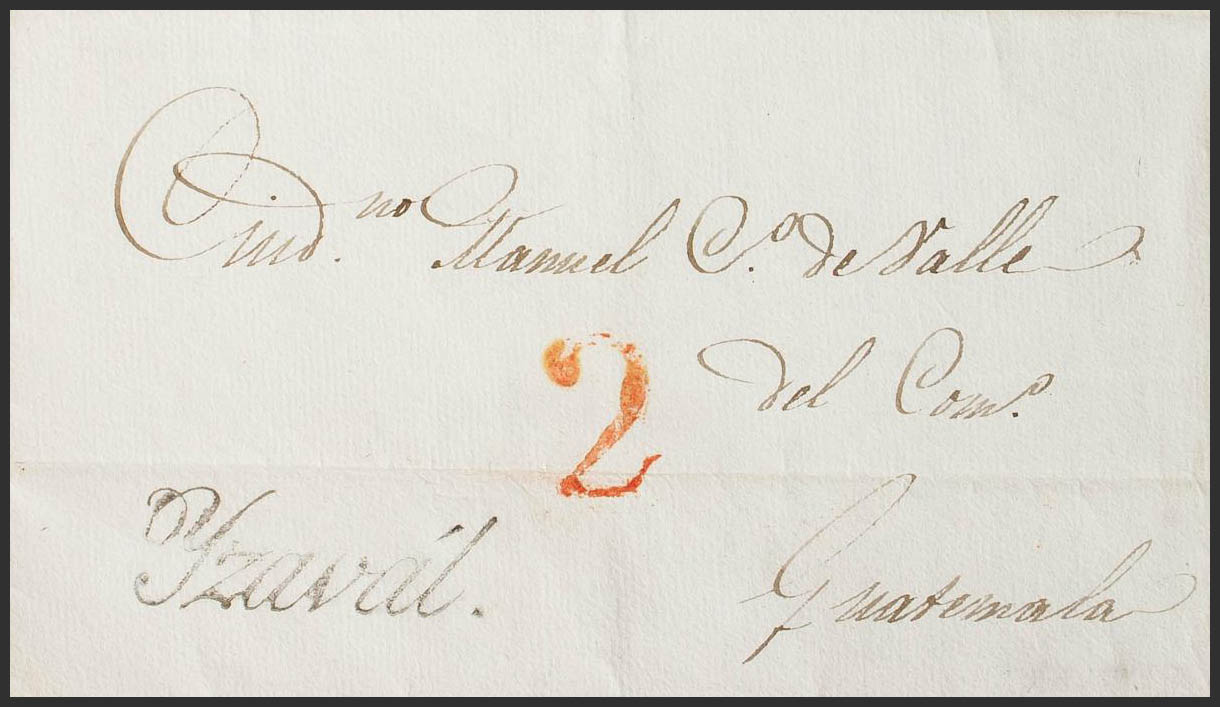 Ciud.no Manuel C.o de Valle
del Com.o
2
Yzavál.
Guatemala